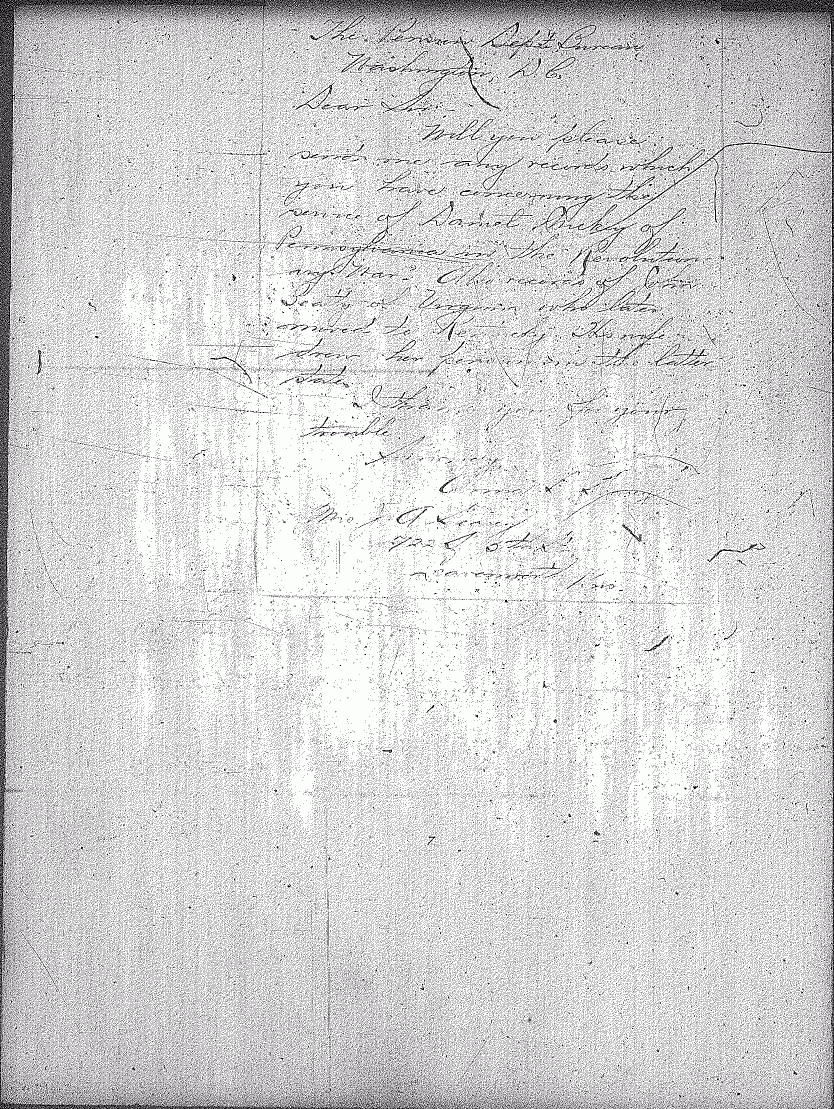 The Pension Dep't Bureau
Washington, D.C.
Dear Sir:
Will you please
send me any records which
you have concerning the
service of Daniel of
Pennsylvania in the Revolution-
ary War? Also records of John
of Virginia who later
moved to Kentucky. His wife
drew her pension in the latter
state.
I thank you for your
trouble.
Sincerely,
Mrs J A
722
Leavenworth Kns.